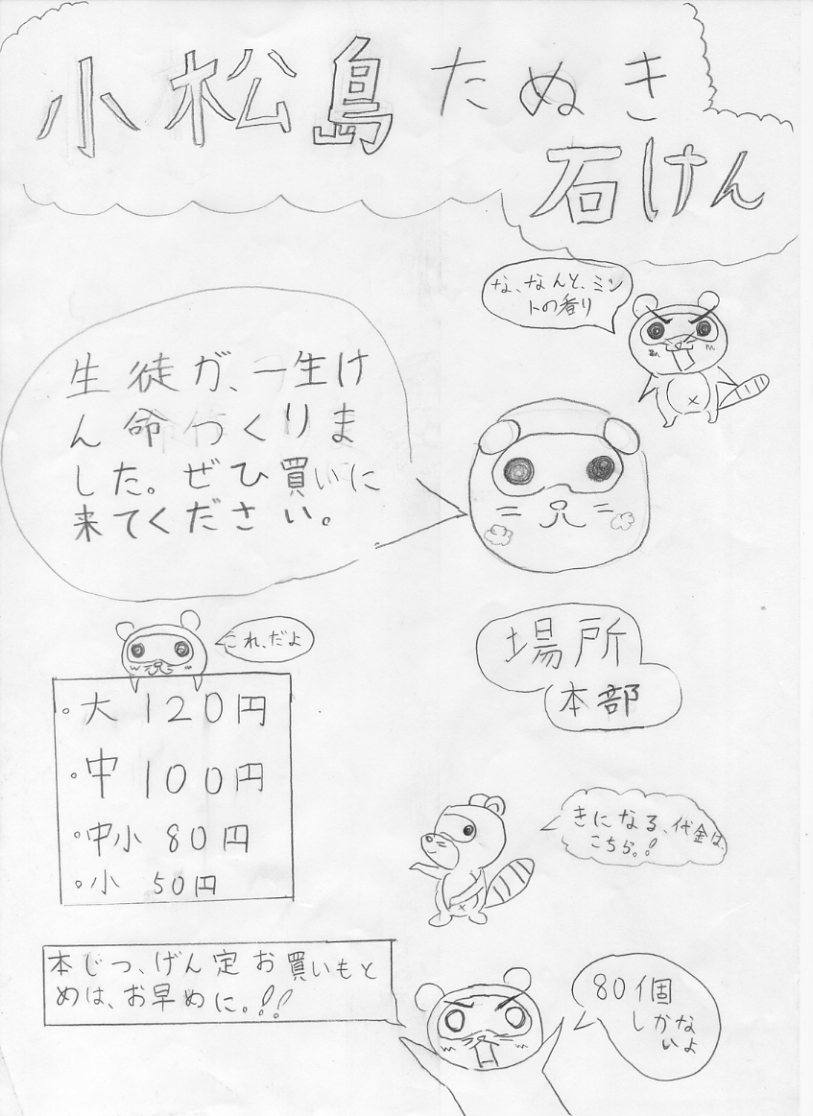 小松島たぬき
石けん
な、なんと、ミン
トの香り
生徒が、一生け
ん命つくりま
した。ぜひ買いに
来てください。
これ、だよ
。大 120円
。中 100円
。中小 80円
。小 50円
場所
本部
きになる、代金は、
こちら。!!
本じつ、げん定お買いもと
めは、お早めに。!!
80個
しかな
いよ